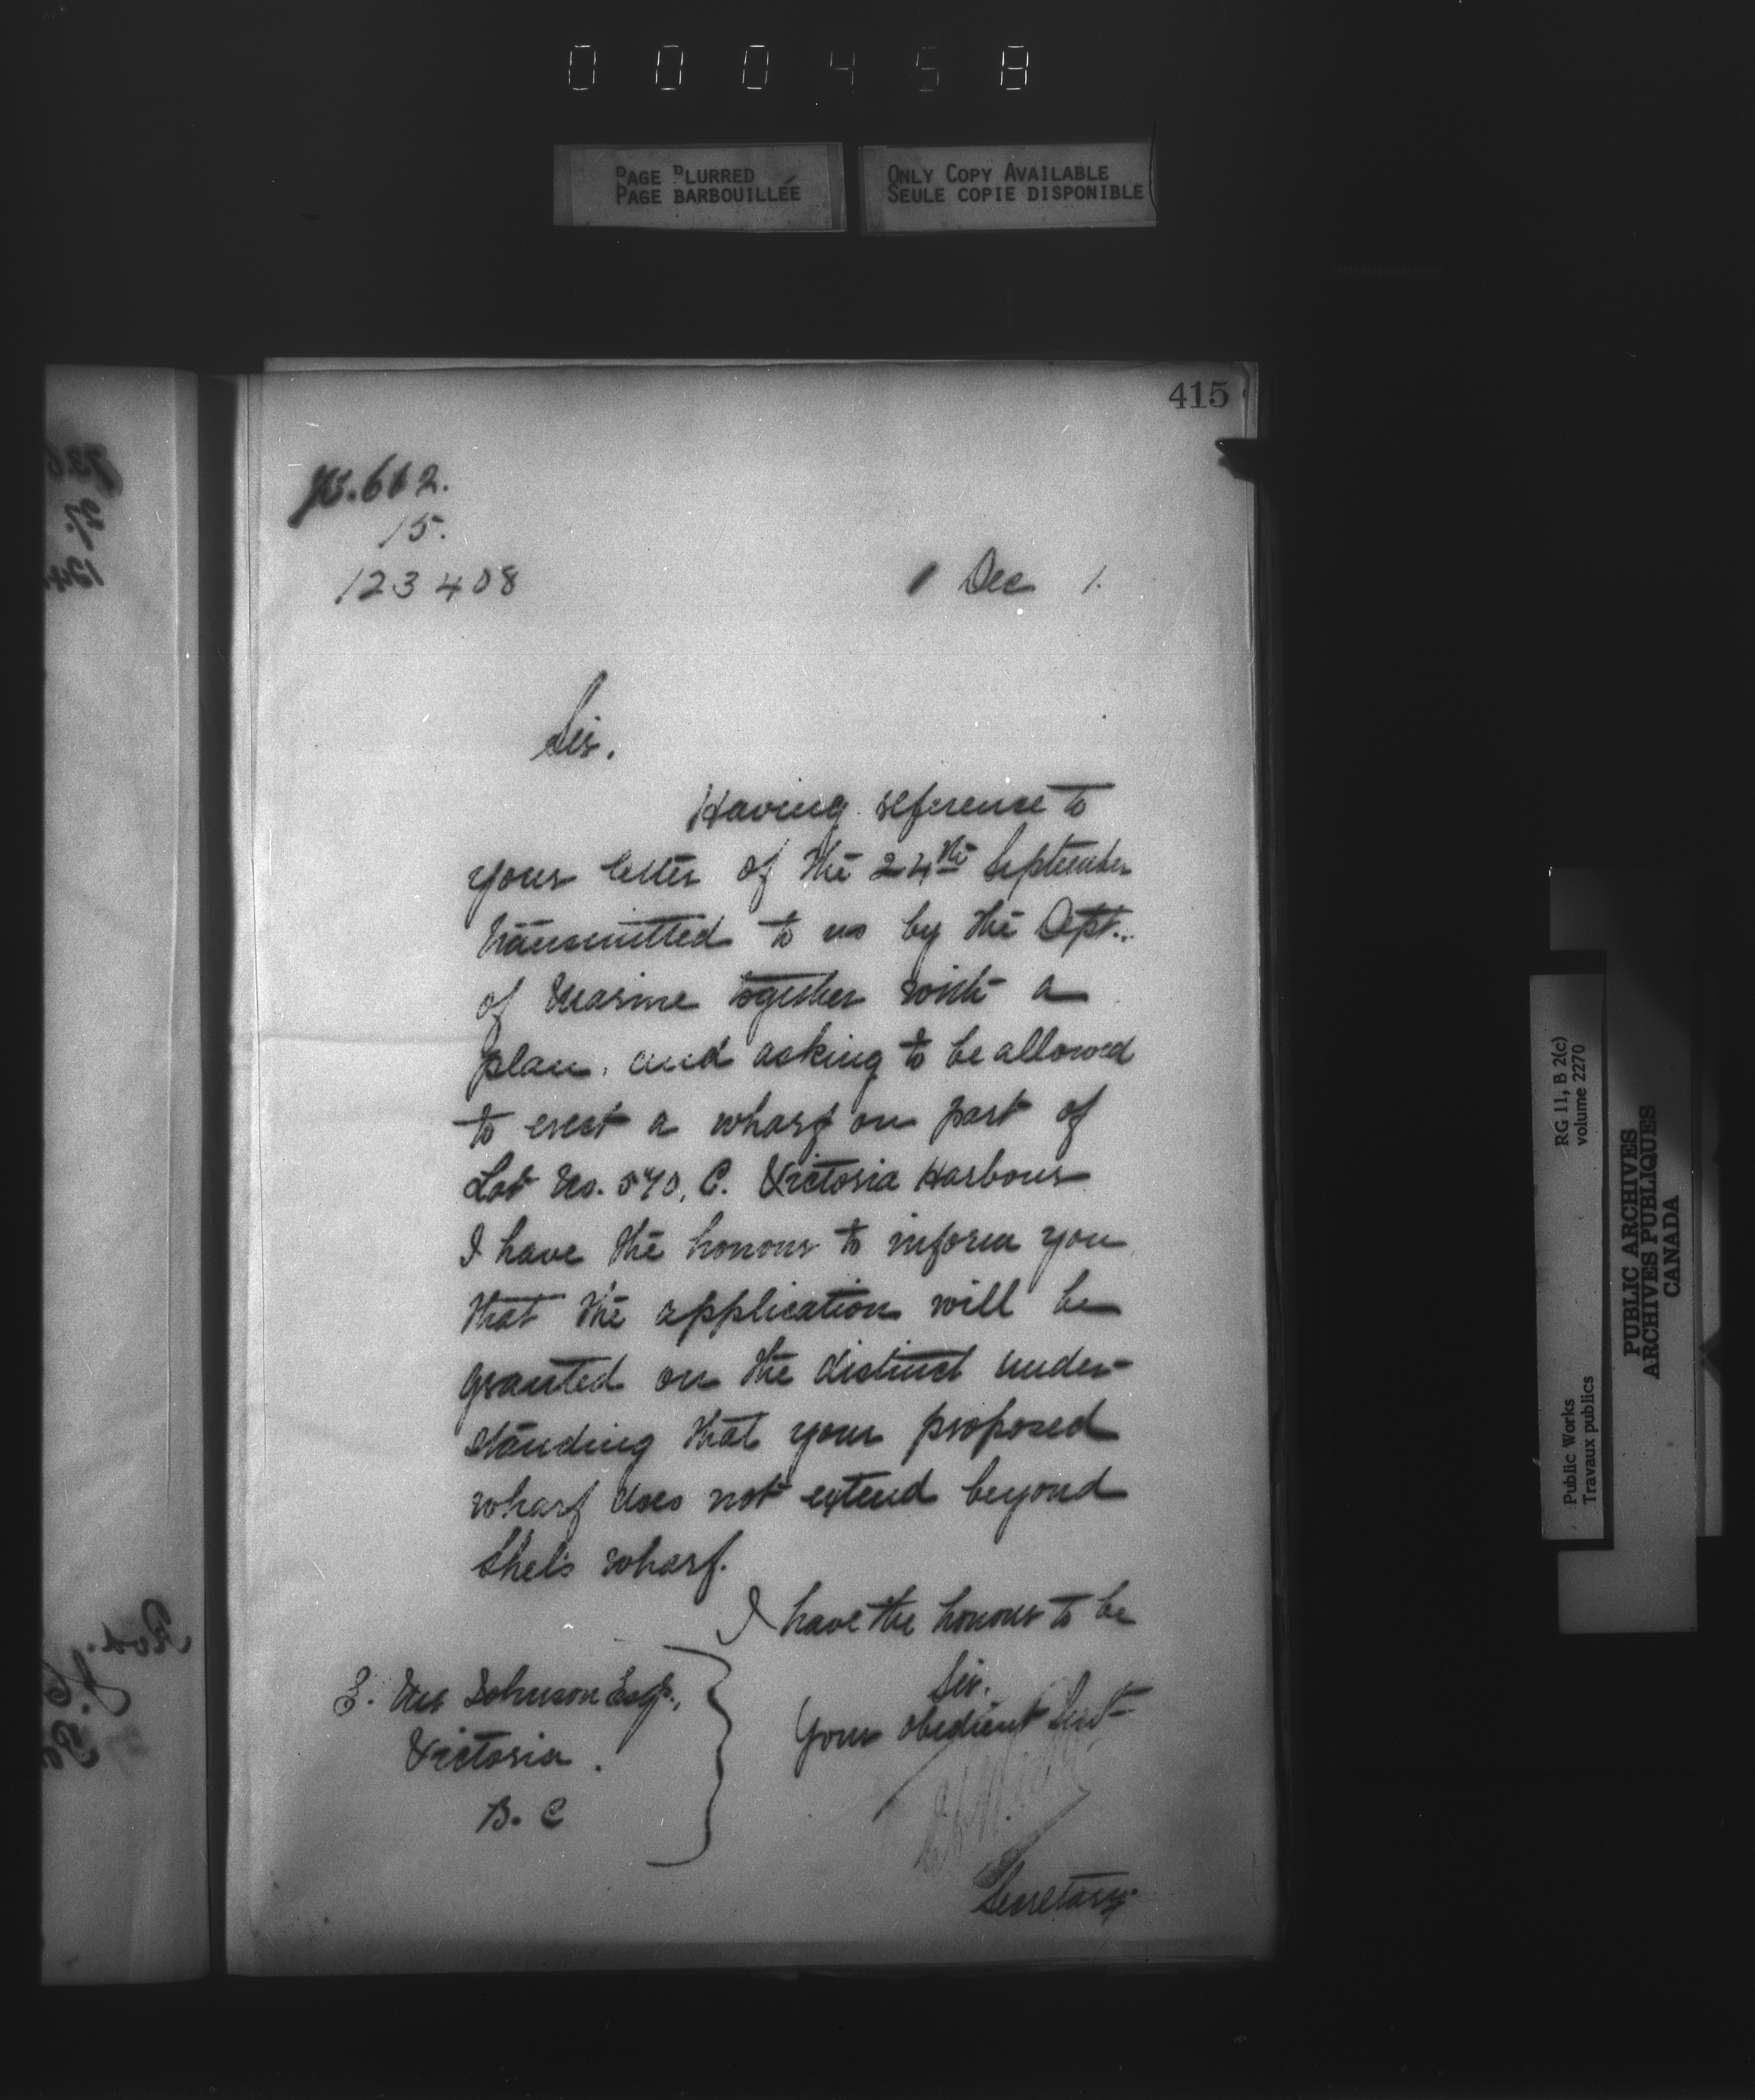 000458
PAGE BLURRED
PAGE BARBOUILLÉE
ONLY COPY AVAILABLE
SEULE COPIE DISPONIBLE
415
15.
123408
1 Dec 1.
Sir,
Having reference to
your letter of the 24th September
transmitted to us by the Dept.
of Marine together with a
plan, and asking to be allowed
to erect a wharf on part of
Lot No. 570, C. Victoria Harbour
I have the honour to inform you
that the application will be
granted on the distinct under-
standing that your proposed
wharf does not extend beyond
wharf.
I have the honour to be
Sir,
Your obedient Servt
Secretary.
E. Johnson Esq.,
Victoria.
B. C
RG 11, B 2(c)
volume 2270
Public Works
Travaux publics
PUBLIC ARCHIVES
ARCHIVES PUBLIQUES
CANADA